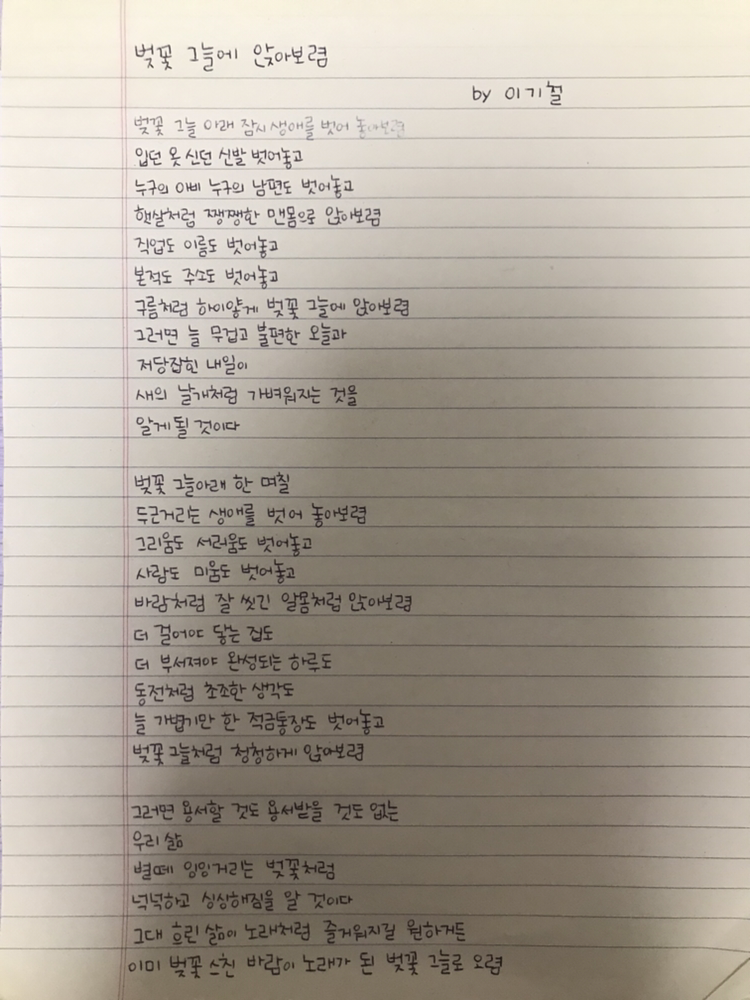 벚꽃 그늘에 앉아보렴
by 이기철
벚꽃 그늘 아래 잠시 생애를 벗어 놓아보렴
입던 옷 신던 신발 벗어놓고
누구의 아비 누구의 남편도 벗어놓고
햇살처럼 쨍쨍한 맨몸으로 앉아보렴
직업도 이름도 벗어놓고
본적도 주소도 벗어놓고
구름처럼 하이얗게 벚꽃 그늘에 앉아보렴
그러면 늘 무겁고 불편한 오늘과
저당잡힌 내일이
새의 날개처럼 가벼워지는 것을
알게될 것이다
벚꽃 그늘아래 한 며칠
두근거리는 생애를 벗어 놓아보렴
그리움도 서러움도 벗어놓고
사랑도 미움도 벗어놓고
바람처럼 잘 씻긴 알몸처럼 앉아보렴
더 걸어야 닿는 집도
더 부서져야 완성되는 하루도
동전처럼 초조한 생각도
늘 가볍기만 한 적금통장도 벗어놓고
벚꽃 그늘처럼 청청하게 앉아보렴
그러면 용서할 것도 용서받을 것도 없는
우리 삶
벌떼 잉잉거리는 벚꽃처럼
넉넉하고 싱싱해짐을 알 것이다
그대 흐린 삶이 노래처럼 즐거워지길 원하거든
이미 벚꽃 스친 바람이 노래가 된 벚꽃 그늘로 오렴